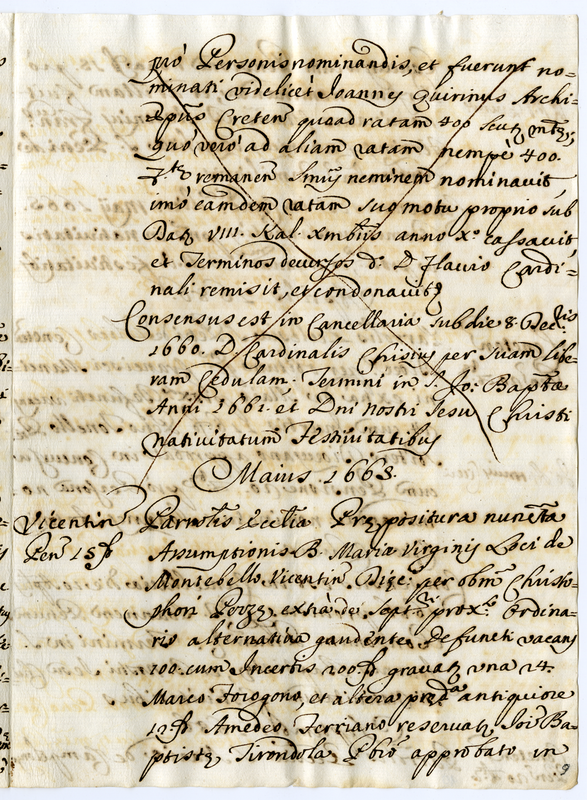 pro Personis nominandis, et fuerunt no=
minati videlicet Joannes Quirinus Archi=
epũs Cretenß quoad ratam 400 scutȝ mtȝ,
quo vero ad aliam ratam nempè 400.
remanenß Smũs neminem nominauit,
imò eamdem ratam suo motu proprio sub
Datȝ VIII. Kal. Xmbris anno Xº. cassauit,
et Terminos decursos dº. D. Flavio Cardi=
nali remisit, et condonauitȝ
Consensus est in Cancellaria sub die 8. Decris
1660. D. Cardinalis Chisius per suam libe=
ram Cedulam. Termini in S. Jo: Baptæ
Anni 1661. et Dni nostri Jesu Christi
natiuitatum Festiuitatibus
Maius. 1663.
Vicentin Parrotis Ecclia Prȝpositura nuncta
Penß 15 Assumptionis B. Mariæ Virginis Loci de
Montebello Vicentinß Dięc: per obm̃ Christo=
phori Pezzȝ extra de Septris prox.º Ordina=
rio alternatiua gaudente, defuncti vacanß
100. cum Incertis 200 grauatȝ vna 24.
Marco Forogono, et altera prædta antiquiore
12. Amedeo Ferriano reseruatȝ Joi Ba=
ptistȝ Tirondola Pbro approbato in
9